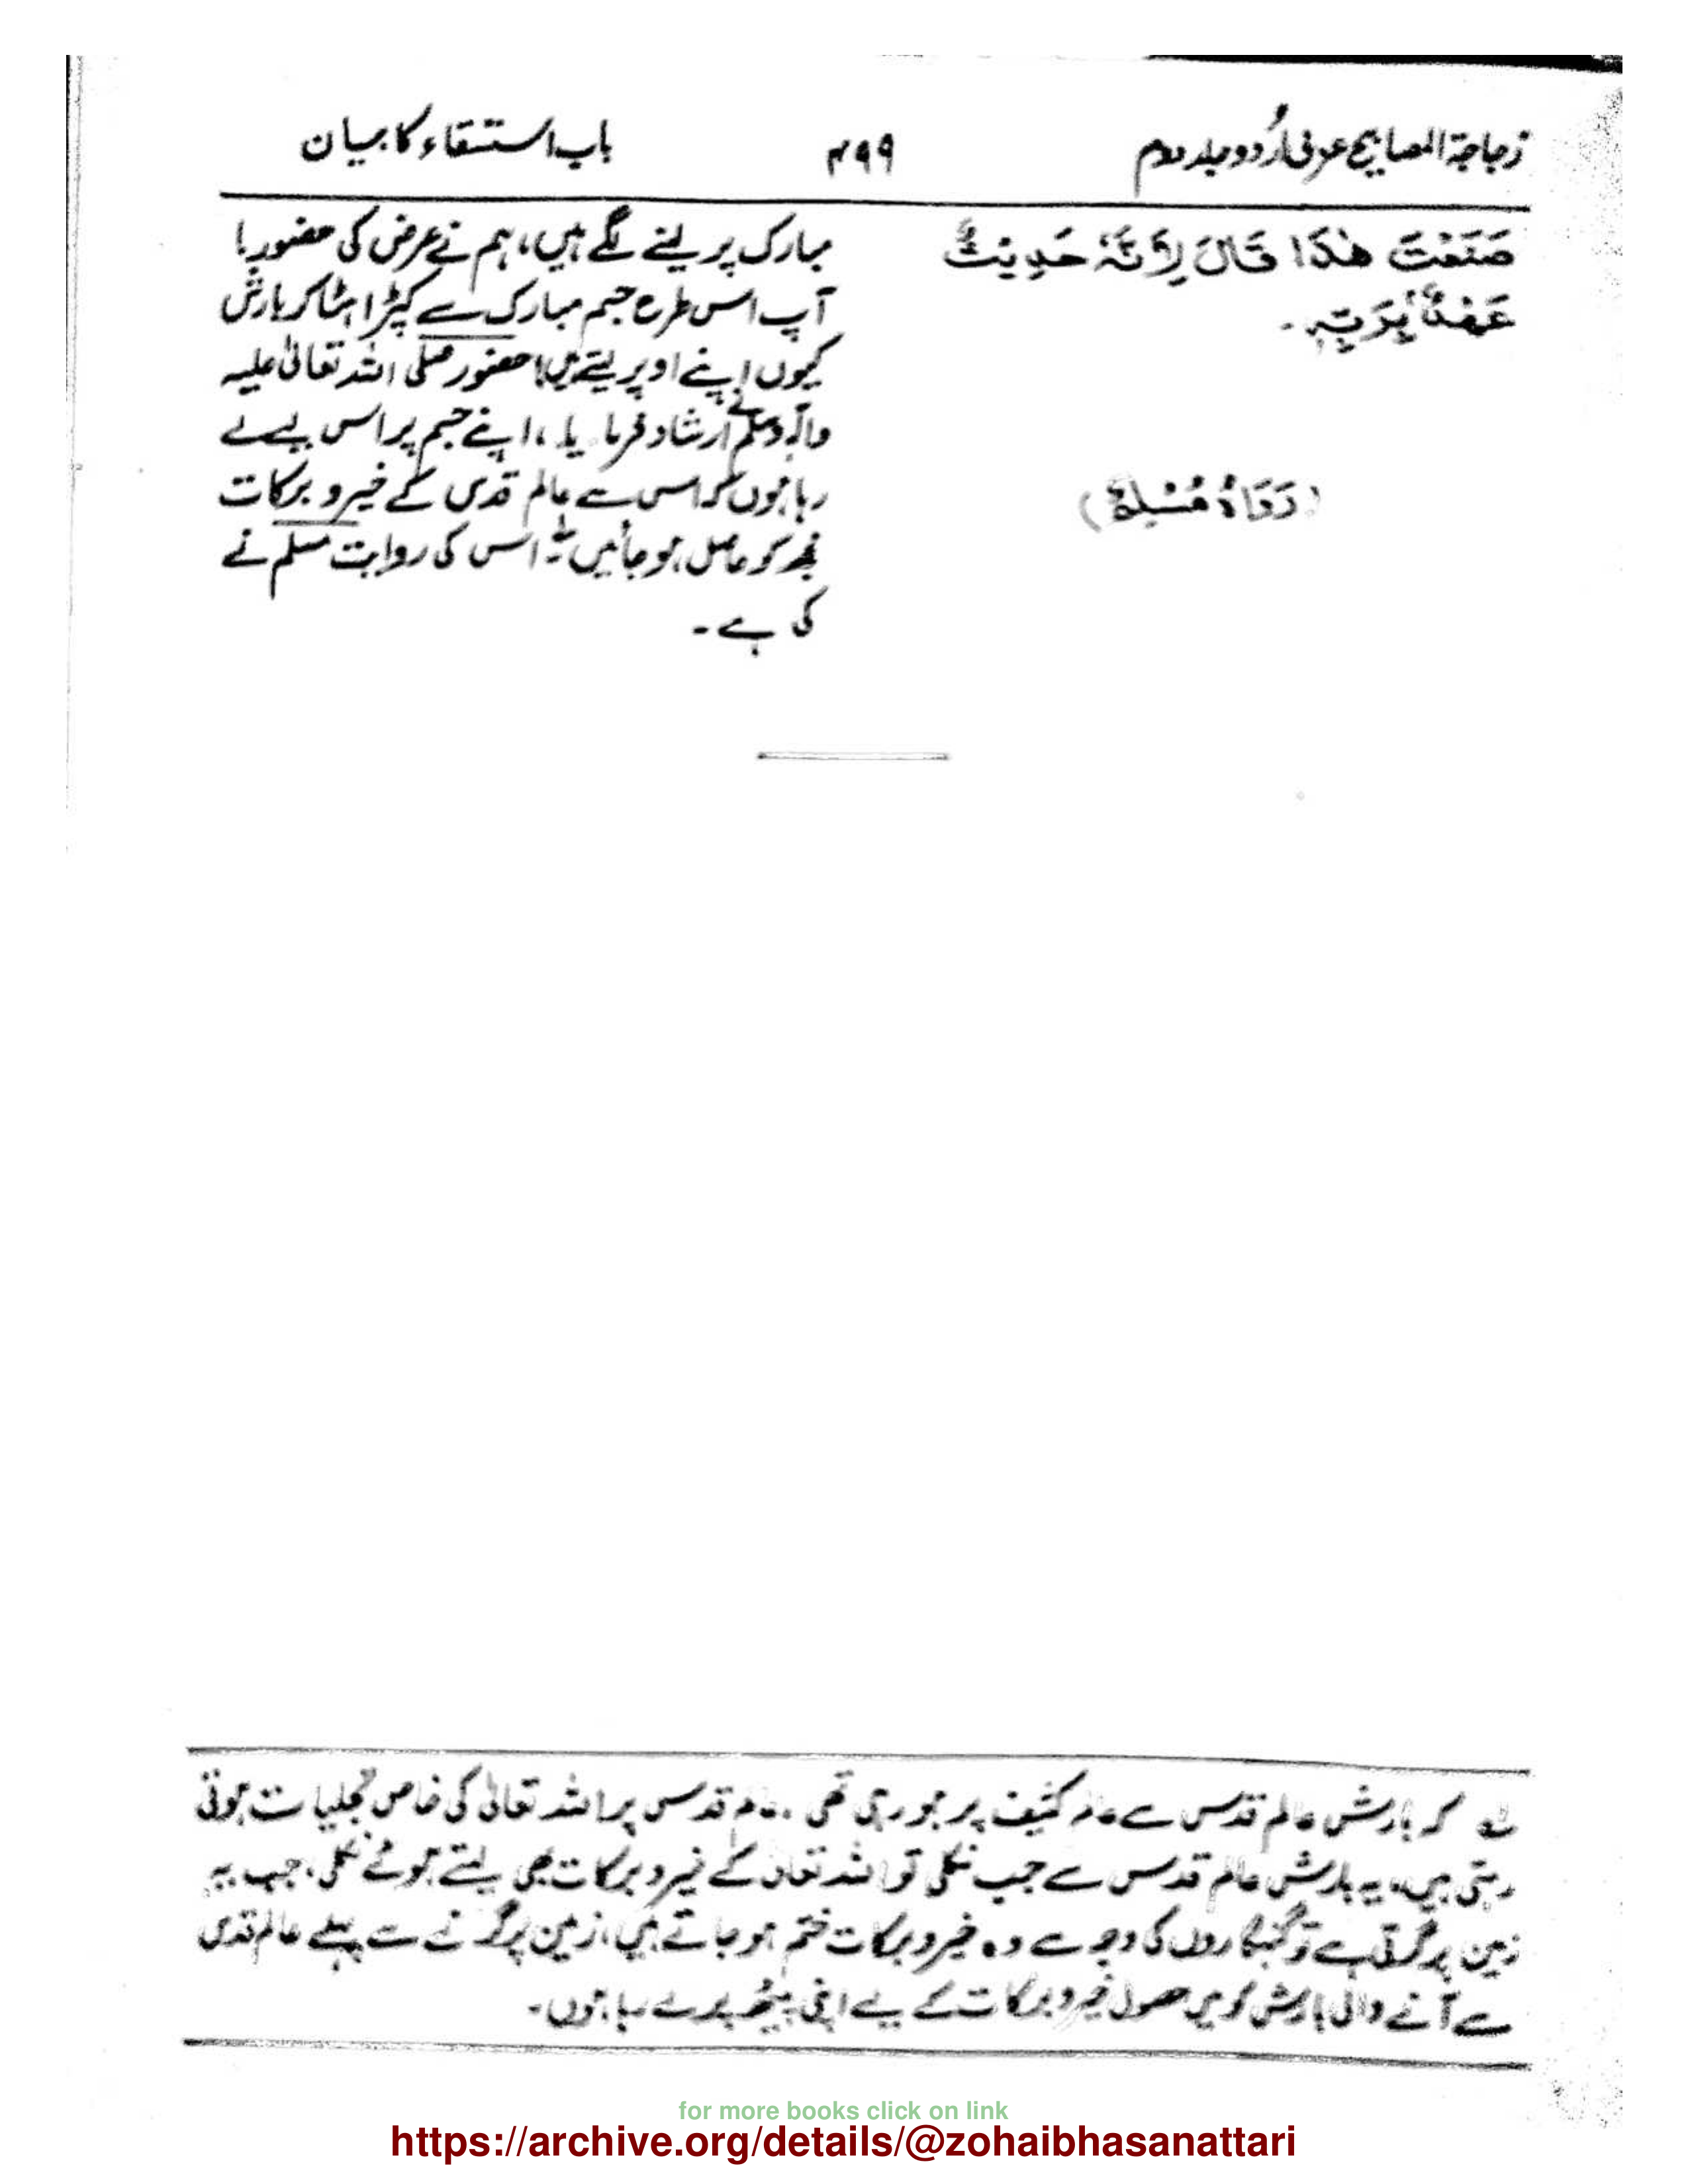 زجاجۃ المصابیح عربی اُردو جلد دوم
۴۹۹
باب استسقاء کا بیان
صَنَعْتَ هٰذَا قَالَ لِاَنَّهٗ حَدِيْثُ
عَهْدٍ بِرَبِّهٖ۔
(رَوَاهُ مُسْلِمٌ)
مبارک پر لینے لگے ہیں، ہم نے عرض کی حضور!
آپ اس طرح جسم مبارک سے کپڑا ہٹا کر بارش
کیوں اپنے اوپر لیتے ہیں! حضور صلی اللہ تعالیٰ علیہ
وآلہ وسلم نے ارشاد فرمایا، اپنے جسم پر اس لیے لے
رہا ہوں کہ اس سے عالم قدس کے خیر و برکات
مجھ کو حاصل ہو جائیں لے اس کی روایت مسلم نے
کی ہے۔
لے کہ بارش عالم قدس سے عالم کثیف پر ہو رہی تھی، عالم قدس پر اللہ تعالیٰ کی خاص تجلیات ہوتی
رہتی ہیں، یہ بارش عالم قدس سے جب نکلی تو اللہ تعالیٰ کے خیر و برکات بھی لیتے ہوئے نکلی، جب یہ
زمین پر گرتی ہے تو گنہگاروں کی وجہ سے وہ خیر و برکات ختم ہو جاتے ہیں، زمین پر گرنے سے پہلے عالم قدس
سے آنے والی بارش کو میں حصول خیر و برکات کے لیے اپنی پیٹھ پر لے رہا ہوں۔
for more books click on link
https://archive.org/details/@zohaibhasanattari